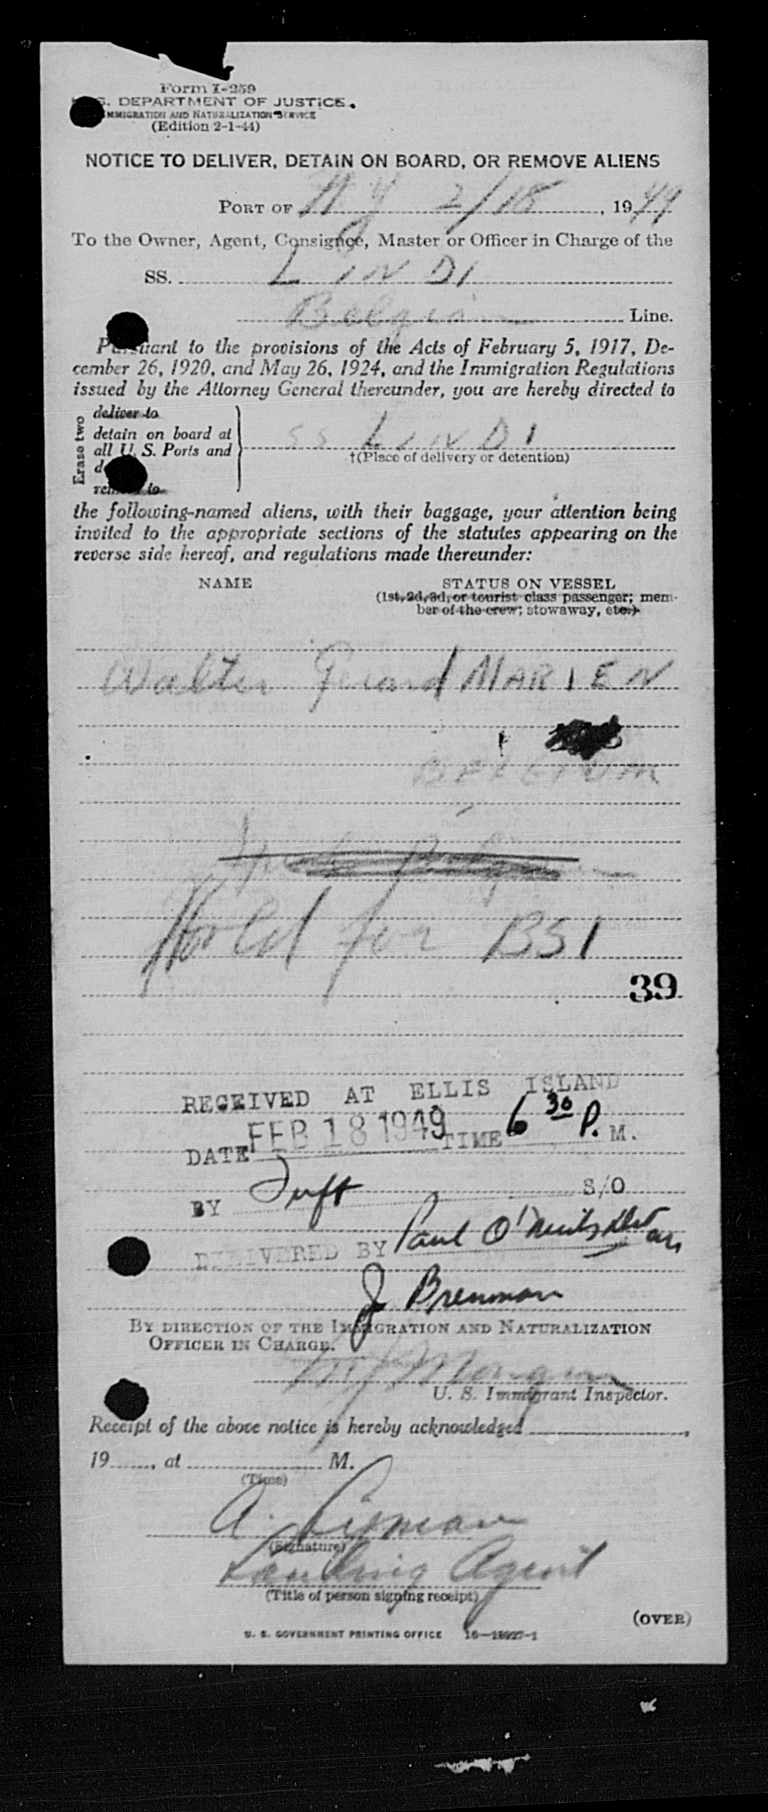 Form I-259
U. S. DEPARTMENT OF JUSTICE
IMMIGRATION AND NATURALIZATION SERVICE
(Edition 2-1-44)
NOTICE TO DELIVER, DETAIN ON BOARD, OR REMOVE ALIENS
PORT OF N Y 2/18, 1949
To the Owner, Agent, Consignee, Master or Officer in Charge of the
SS. LINDI
Belgian Line.
Pursuant to the provisions of the Acts of February 5, 1917, De-
cember 26, 1920, and May 26, 1924, and the Immigration Regulations
issued by the Attorney General thereunder, you are hereby directed to
Erase two
deliver to
detain on board at
all U. S. Ports and
remove to
SS LINDI
†(Place of delivery or detention)
the following-named aliens, with their baggage, your attention being
invited to the appropriate sections of the statutes appearing on the
reverse side hereof, and regulations made thereunder:
NAME STATUS ON VESSEL
(1st, 2d, 3d, or tourist class passenger; mem-
ber of the crew; stowaway, etc.)
Walter Gerard MARIEN
BELGIUM
Hold for BSI
39
RECEIVED AT ELLIS ISLAND
DATE FEB 18 1949 TIME 6 30 P. M.
BY Tuft S/O
DELIVERED BY Paul O'Neill
J Brennan
BY DIRECTION OF THE IMMIGRATION AND NATURALIZATION
OFFICER IN CHARGE.
U. S. Immigrant Inspector.
Receipt of the above notice is hereby acknowledged
19 , at M.
(Time)
A.
(Signature)
Landing Agent
(Title of person signing receipt)
(OVER)
U. S. GOVERNMENT PRINTING OFFICE 16—18927-1